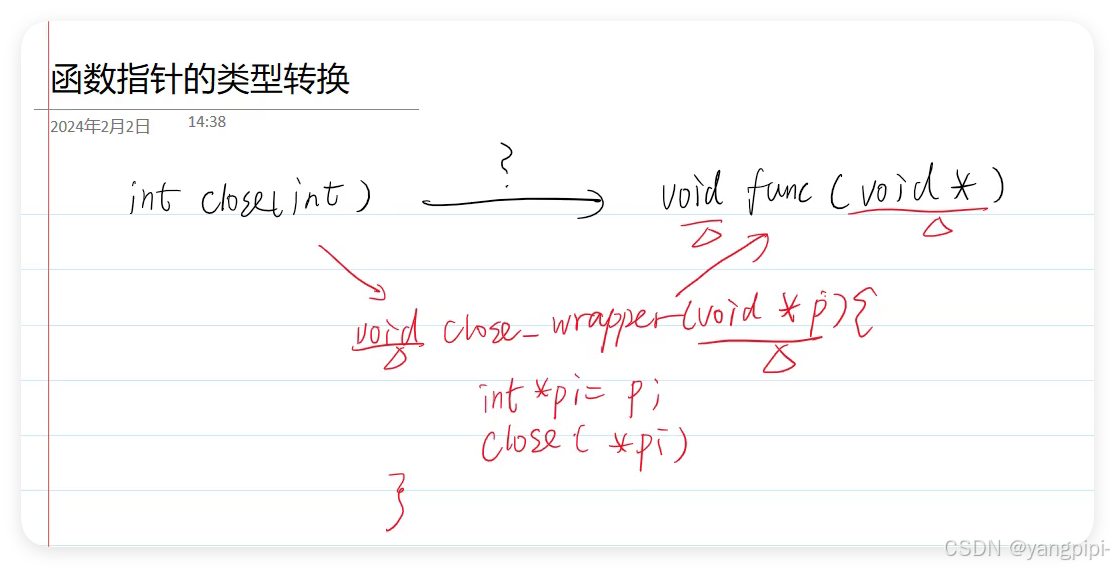 函数指针的类型转换
2024年2月2日 14:38
?
int close(int) void func (void *)
void close_wrapper(void *p){
int *pi= p;
close( *pi)
}
CSDN @yangpipi-